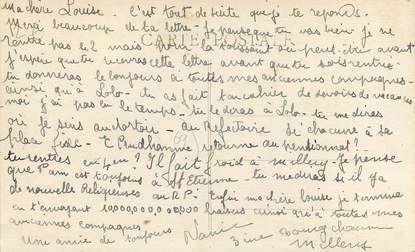 Ma chère Louise. C'est tout de suite que je te réponds.
Merci beaucoup de ta lettre. Je pense que tu vas bien je ne
rentre pas le 2 mais après la Toussaint ou peut-être avant
j'espère que tu auras cette lettre avant que tu sois rentrée
tu donneras le bonjour à toutes mes anciennes compagnes
ainsi qu'à Lolo. tu as fait ton cahier de devoirs de vacances
moi j'ai pas eu le temps. tu le diras à Lolo. tu me diras
où je suis au dortoir au Réfectoire si chacune à sa
place fixe. E Prudhomme retourne au pensionnat?
tu rentres en 4 eme? Il fait froid à Millery. Je pense
que Pam est toujours à St Etienne. tu me diras si il y a
de nouvelle Religieuses au R.P. Enfin ma chère Louise je termine
en t'envoyant 10,000,000,000000 baisers ainsi qu'à toutes mes
anciennes compagnes.
Une amie de toujours
Millery